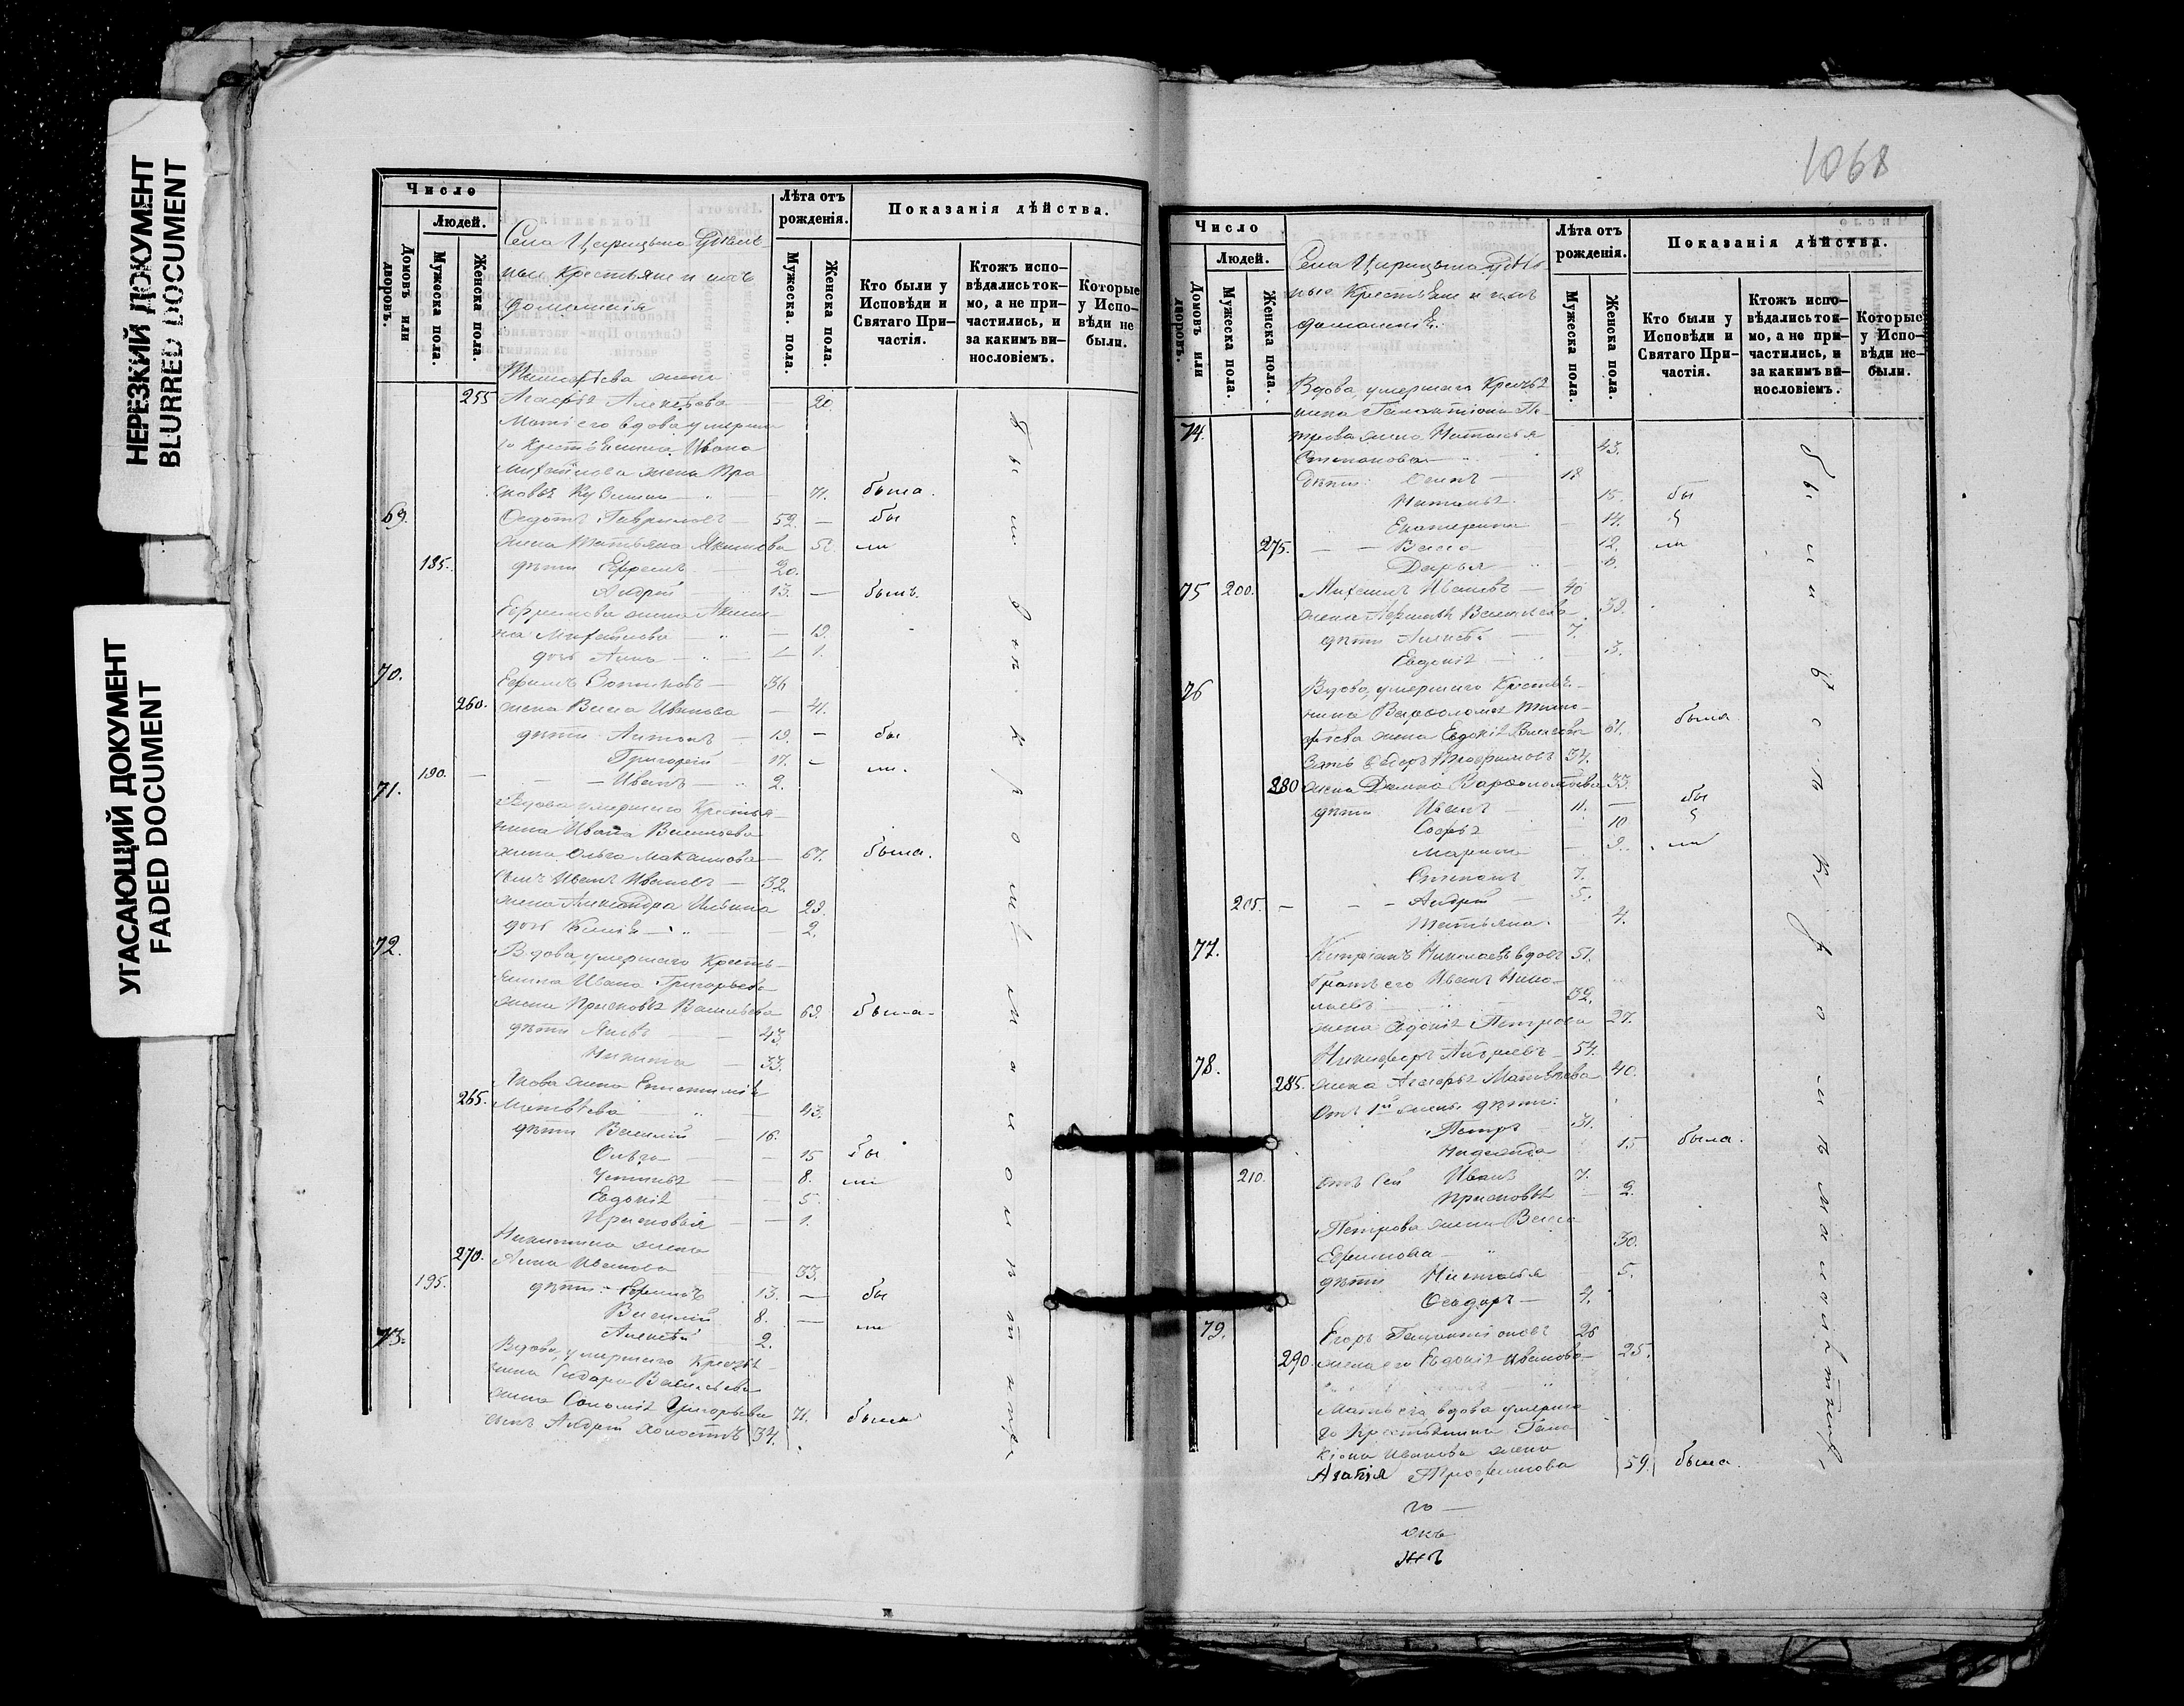 НЕРЕЗКИЙ ДОКУМЕНТ
BLURRED DOCUMENT
УГАСАЮЩИЙ ДОКУМЕНТ
FADED DOCUMENT
Число
Людей.
Домовъ или дворовъ.
Мужеска пола.
Женска пола.
Села Царицына
Крестьяне и ихъ
домашнія
Лѣта отъ рожденія.
Мужеска. пола.
Женска пола.
Показанія дѣйства.
Кто были у Исповѣди и Святаго Причастія.
Ктожъ исповѣдались токмо, а не причастились, и за какимъ винословіемъ.
Которые у Исповѣди не были.
жена
255 Агафья Алексѣева 20.
Мать его вдова умерша
го Крестьянина Ивана
Михайлова жена Пра
сковья 71. была.
69. Ѳедотъ Гавриловъ 52. — бы
жена Татьяна Якимова ли
185. дѣти Ефремъ 20.
Андрей 13. — былъ.
Ефремова жена
Михайлова 19.
дочь Анна 1.
70. 36
260. жена Васса Иванова 41.
дѣти Антонъ 19. — бы
Григорій 17. — ли.
190. Иванъ 2.
71. Вдова умершаго Крестья-
нина Ивана Васильева
жена Ольга Максимова 67. была.
сынъ Иванъ Ивановъ 32.
жена Александра Ильина 29.
дочь 2.
72. Вдова умершаго Кресть-
янина Ивана Григорьева
жена Прасковья Васильева 69. была
дѣти Яковъ 43.
Никита 33.
Якова жена
265. Матвѣева 43.
дѣти Василій 16.
Ольга 15 бы
Устинья 8. ли
Евдокія 5.
Прасковья 1.
Никитина жена
270. Анна Иванова 33.
195. дѣти: Ефимъ 13. — бы
Василій 8. — ли
Алексѣй 2.
73. Вдова умершаго Крестья-
нина Сидора Васильева
жена Соломія Григорьева 71. была
сынъ Андрей холостъ 34.
1068
Число
Людей.
Домовъ или дворовъ.
Мужеска пола.
Женска пола.
Села Царицына
Крестьяне и ихъ
домашнія.
Лѣта отъ рожденія.
Мужеска пола.
Женска пола.
Показанія дѣйства.
Кто были у Исповѣди и Святаго Причастія.
Ктожъ исповѣдались токмо, а не причастились, и за какимъ винословіемъ.
Которые у Исповѣди не были.
Вдова умершаго Крестья-
нина Галактіона Пе-
74. трова жена Наталья
Степанова 43.
Дѣти: Осипъ 18
Наталья 15. бы
Екатерина 14.
275. Васса 12. ли
Дарья
75 200. Михаилъ Ивановъ 40
жена Васильева 39.
дѣти Алексѣй 7.
Евдокія 3.
76 Вдова умершаго Крестья-
нина Варѳоломея Тимо-
фѣева жена Евдокія 61. была
Зять Ѳедоръ Трофимовъ 34.
280 жена Домна Варѳоломѣева 33.
дѣти Иванъ 11. — бы
Софья 10
Марина 9. ли
Степанъ 7.
205. Андрей 5.
Татьяна 4.
77. Кипріанъ Николаевъ вдовъ 51.
братъ его Иванъ Нико-
лаевъ 32.
жена Евдокія Петрова 27.
78. Никифоръ Андреевъ 54.
285. жена Агафья Матвѣева 40.
Отъ 1й жены дѣти:
Петръ 31.
Надежда 15 была.
210. Отъ сей Иванъ 7.
Прасковья 2.
Петрова жена Васса
Ефимова 30.
дѣти Наталья 5.
Ѳеодоръ 4.
79. Егоръ Галактіоновъ 26
290. жена его Евдокія Иванова 25.
Мать его вдова умерша
го Крестьянина Гала
кіона Иванова жена
Агапія Трофимова 59. была.